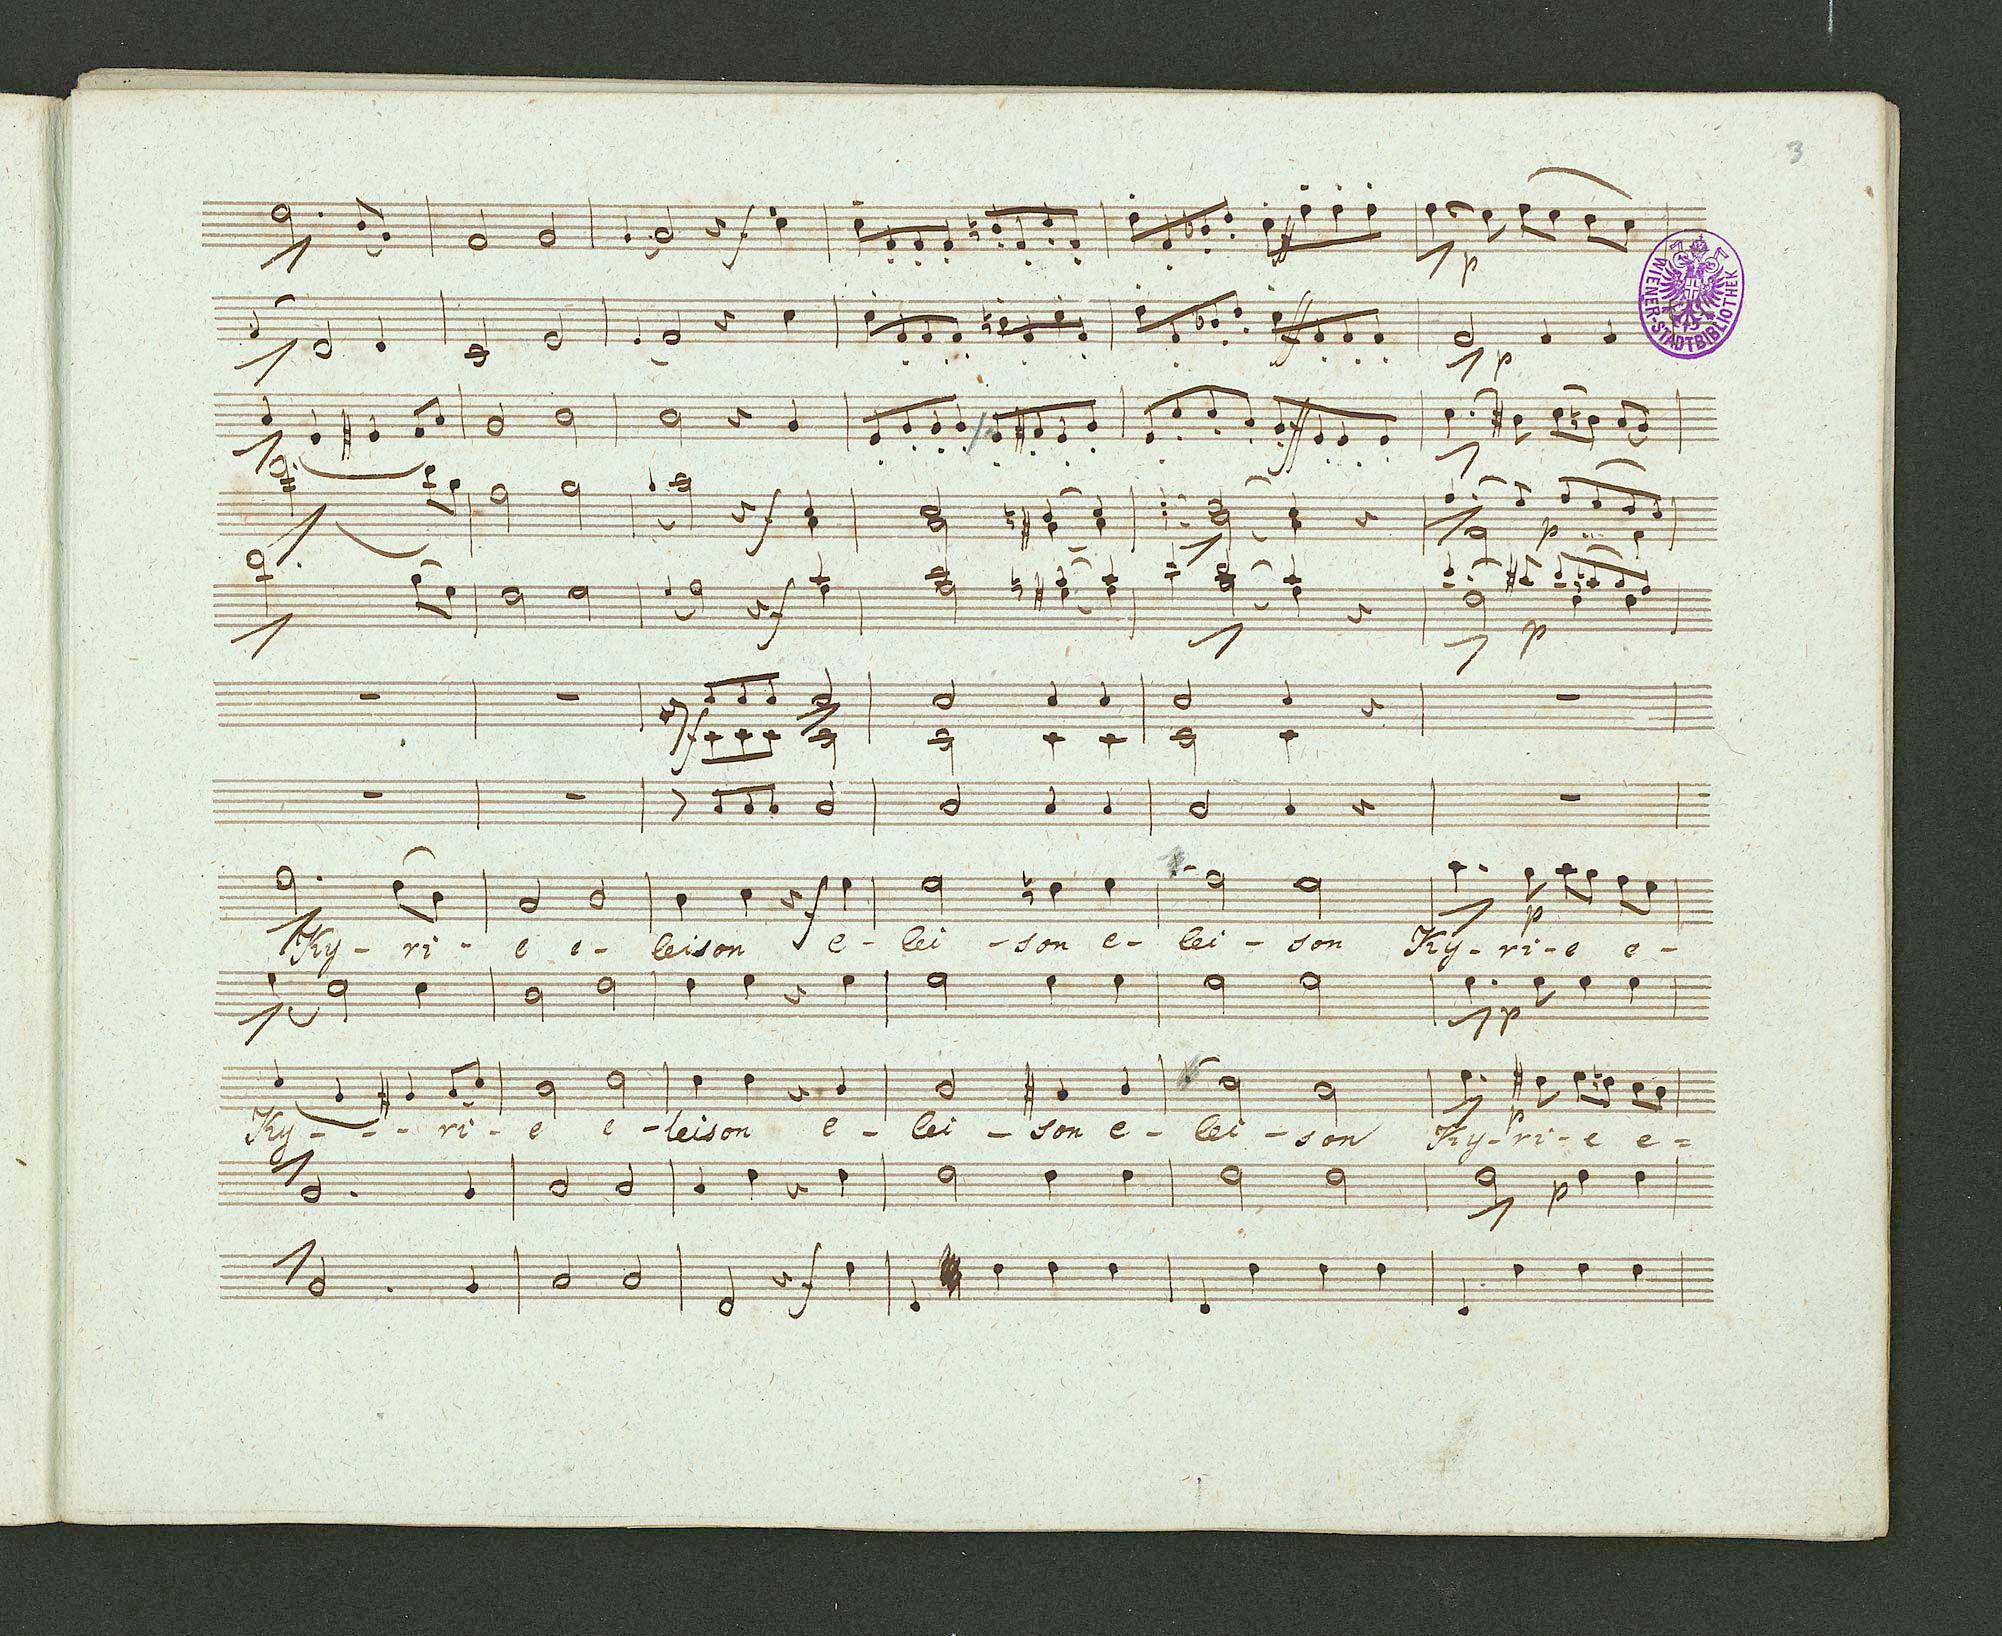 3
f
ff
p
WIENER-STADTBIBLIOTHEK
ff
p
ff
f
p
f
p
f
f
p
Ky - ri - e e - leison e - lei - son e - lei - son Ky - ri - e e -
p
p
Ky - - - ri - e e - leison e - lei - son e - lei - son Ky - ri - e e =
p
f